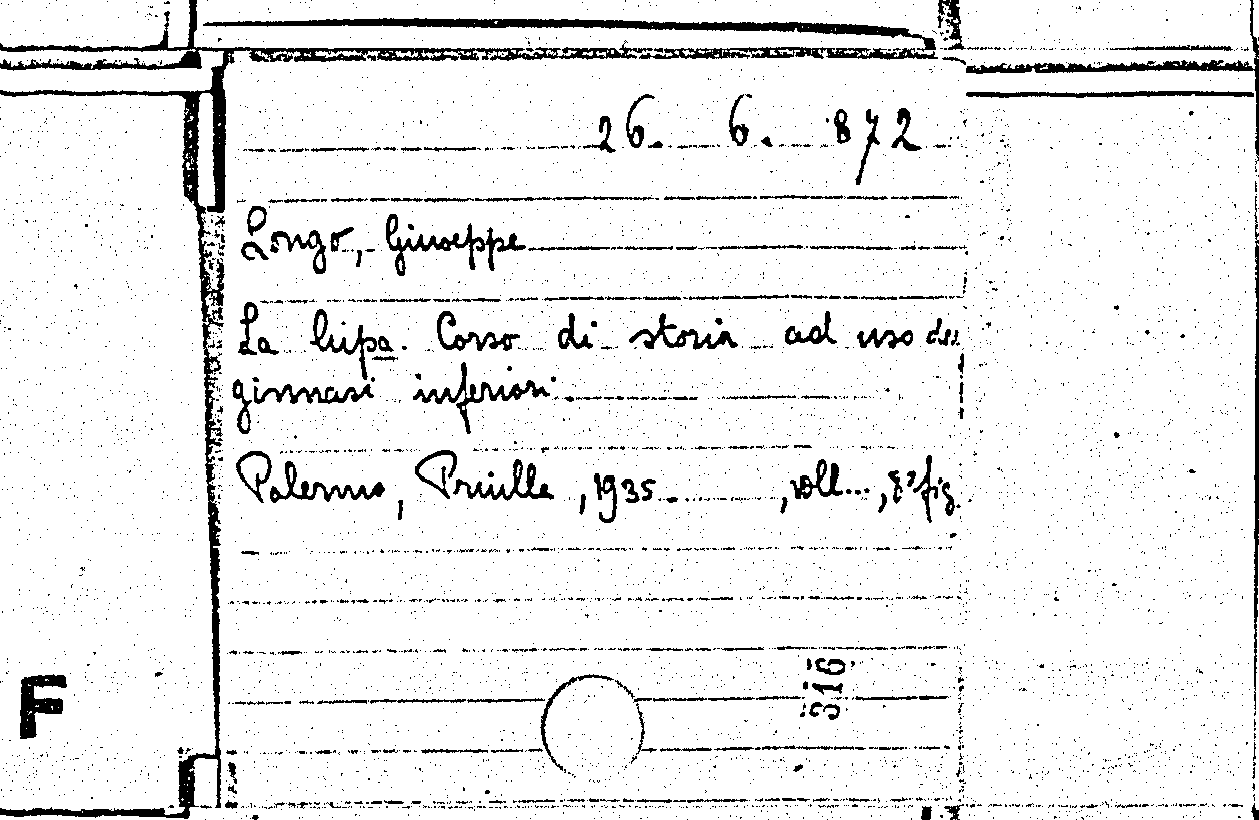 26. 6. 872
Longo, Giuseppe
La lupa. Corso di storia ad uso dei
ginnasi inferiori.
Palermo, Priulla, 1935- ,voll..., 8° fig.
316
F